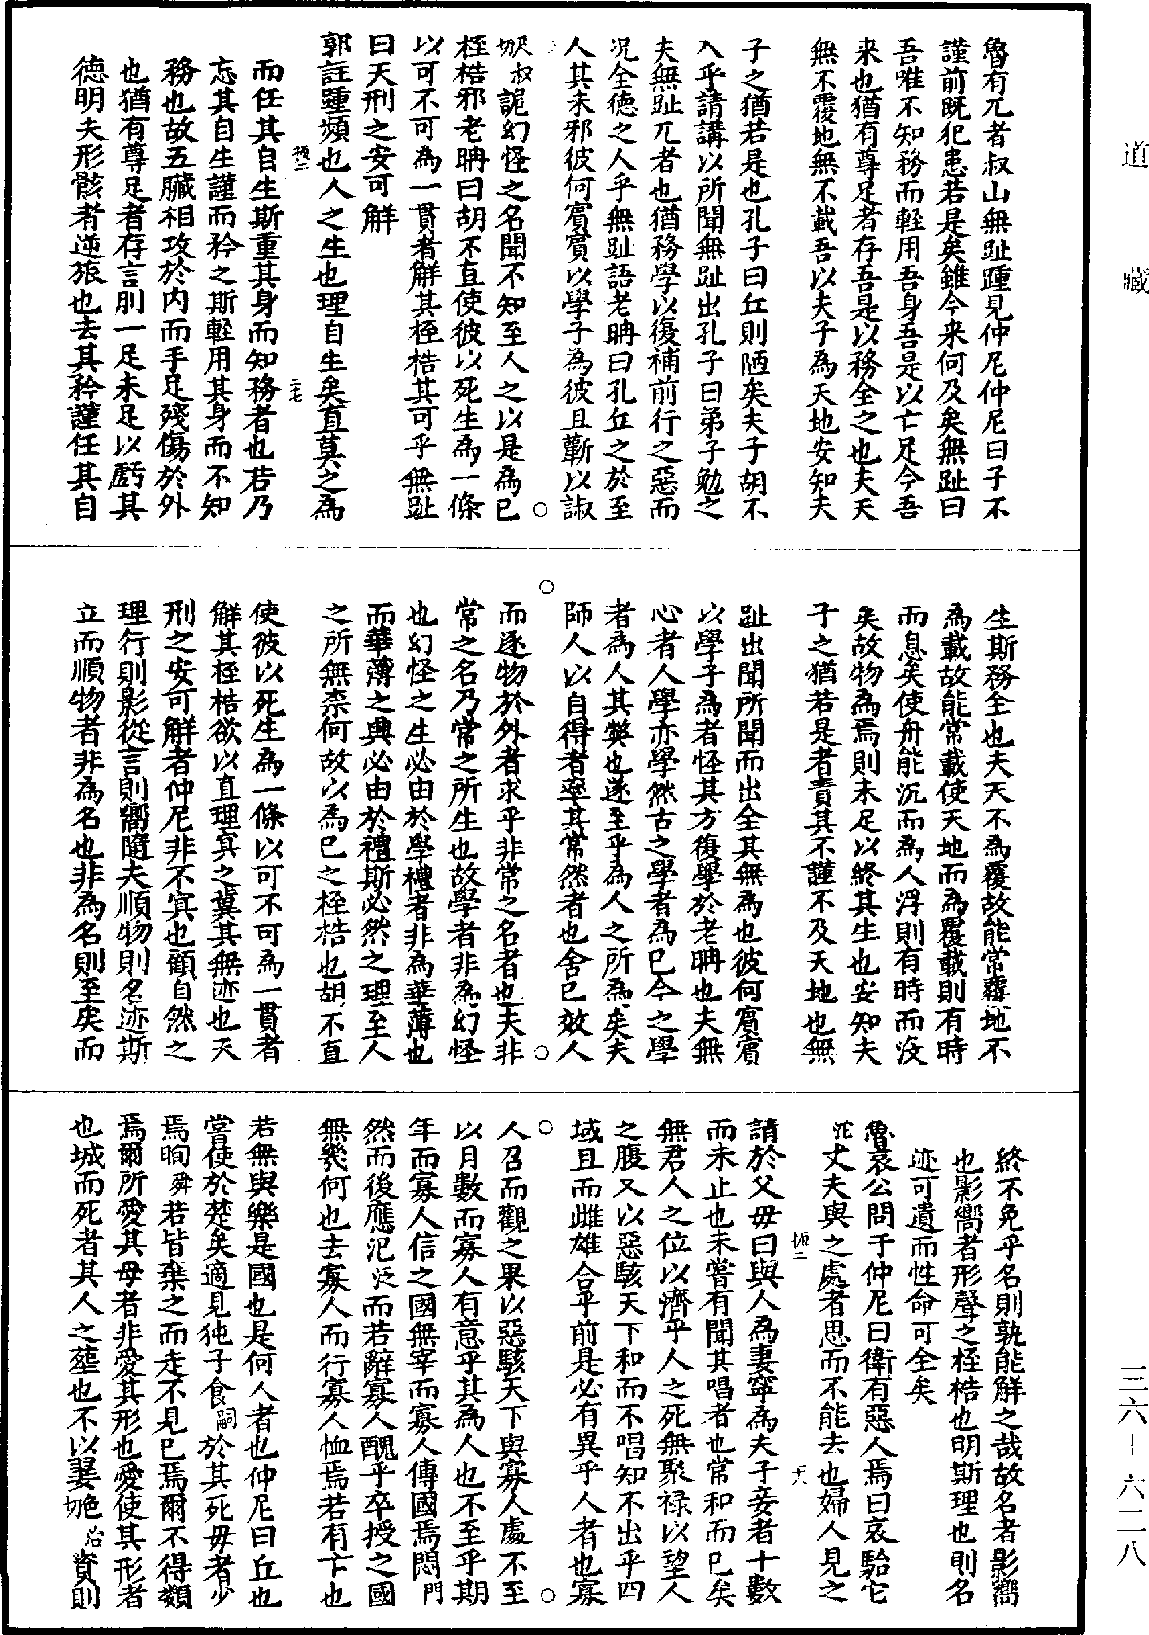 道藏
三六-六二八
魯有兀者叔山無趾踵見仲尼仲尼曰子不
謹前既犯患若是矣雖今来何及矣無趾曰
吾唯不知務而輕用吾身吾是以亡足今吾
来也猶有尊足者存吾是以務全之也夫天
無不覆地無不載吾以夫子為天地安知夫
子之猶若是也孔子曰丘則陋矣夫子胡不
入乎請講以所聞無趾出孔子曰弟子勉之
夫無趾兀者也猶務學以復補前行之惡而
况全德之人乎無趾語老聃曰孔丘之於至
人其未邪彼何賓賓以學子為彼且蘄以諔
尺叔切詭幻怪之名聞不知至人之以是為已
桎梏邪老聃曰胡不直使彼以死生為一條
以可不可為一貫者解其桎梏其可乎無趾
曰天刑之安可解
郭註踵頻也人之生也理自生矣直莫之為
而任其自生斯重其身而知務者也若乃
忘其自生謹而矜之斯輕用其身而不知
務也故五臟相攻於内而手足殘傷於外
也猶有尊足者存言刖一足未足以虧其
德明夫形骸者逆旅也去其矜謹任其自
生斯務全也夫天不為覆故能常覆地不
為載故能常載使天地而為覆載則有時
而息矣使舟能沉而為人浮則有時而没
矣故物為焉則未足以終其生也安知夫
子之猶若是者責其不謹不及天地也無
趾出聞所聞而出全其無為也彼何賓賓
以學子為者怪其方復學於老聃也夫無
心者人學亦學然古之學者為已今之學
者為人其弊也遂至乎為人之所為矣夫
師人以自得者率其常然者也舍已效人
而逐物於外者求乎非常之名者也夫非
常之名乃常之所生也故學者非為幻怪
也幻怪之生必由於學禮者非為華薄也
而華薄之興必由於禮斯必然之理至人
之所無柰何故以為已之桎梏也胡不直
使彼以死生為一條以可不可為一貫者
解其桎梏欲以直理冥之冀其無迹也天
刑之安可解者仲尼非不冥也顧自然之
理行則影從言則嚮隨夫順物則名迹斯
立而順物者非為名也非為名則至矣而
終不免乎名則孰能解之哉故名者影嚮
也影嚮者形聲之桎梏也明斯理也則名
迹可遺而性命可全矣
魯哀公問于仲尼曰衛有惡人焉曰哀駘它
沱丈夫與之處者思而不能去也婦人見之
請於父母曰與人為妻寧為夫子妾者十數
而未止也未嘗有聞其唱者也常和而已矣
無君人之位以濟乎人之死無聚禄以望人
之腹又以惡駭天下和而不唱知不出乎四
域且而雌雄合乎前是必有異乎人者也寡
人召而觀之果以惡駭天下與寡人處不至
以月數而寡人有意乎其為人也不至乎期
年而寡人信之國無宰而寡人傳國焉悶門
然而後應氾泛而若辭寡人醜乎卒授之國
無幾何也去寡人而行寡人恤焉若有亡也
若無與樂是國也是何人者也仲尼曰丘也
嘗使於楚矣適見㹠子食嗣於其死母者少
焉眴舜若皆棄之而走不見已焉爾不得類
焉爾所愛其母者非愛其形也愛使其形者
也城而死者其人之塟也不以翣色洽切資則